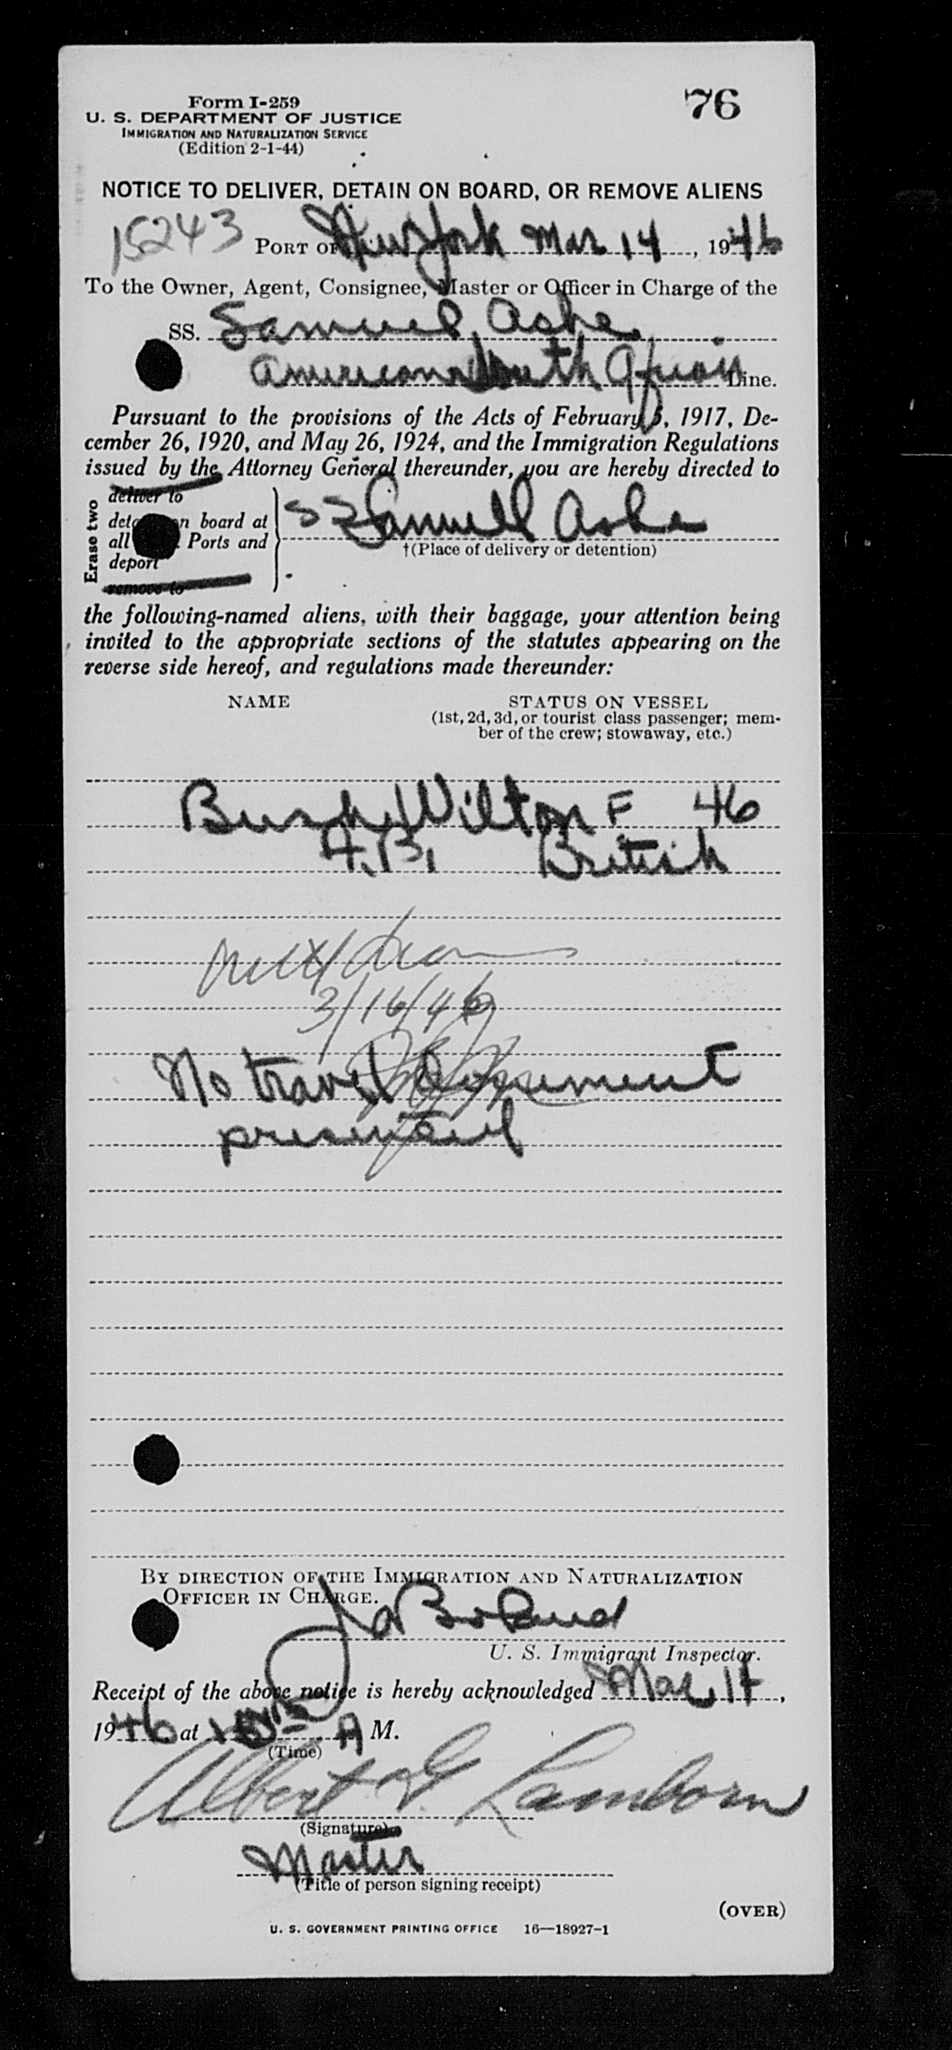 Form I-259
76
U. S. DEPARTMENT OF JUSTICE
IMMIGRATION AND NATURALIZATION SERVICE
(Edition 2-1-44)
NOTICE TO DELIVER, DETAIN ON BOARD, OR REMOVE ALIENS
15243 PORT OF New York Mar 14, 1946
To the Owner, Agent, Consignee, Master or Officer in Charge of the
SS. Samuel Ashe
American South African Line.
Pursuant to the provisions of the Acts of February 5, 1917, De-
cember 26, 1920, and May 26, 1924, and the Immigration Regulations
issued by the Attorney General thereunder, you are hereby directed to
Erase two
deliver to
detain on board at
all Ports and
deport
remove to
SS Samuel Ashe
†(Place of delivery or detention)
the following-named aliens, with their baggage, your attention being
invited to the appropriate sections of the statutes appearing on the
reverse side hereof, and regulations made thereunder:
NAME STATUS ON VESSEL
(1st, 2d, 3d, or tourist class passenger; mem-
ber of the crew; stowaway, etc.)
Bush, Wilton F 46
A.B. British
3/16/46
No travel Document
presented
BY DIRECTION OF THE IMMIGRATION AND NATURALIZATION
OFFICER IN CHARGE.
U. S. Immigrant Inspector.
Receipt of the above notice is hereby acknowledged Mar 14,
1946 at A M.
(Time)
Albert G. Lamborn
(Signature)
Master
(Title of person signing receipt)
(OVER)
U. S. GOVERNMENT PRINTING OFFICE 16—18927-1